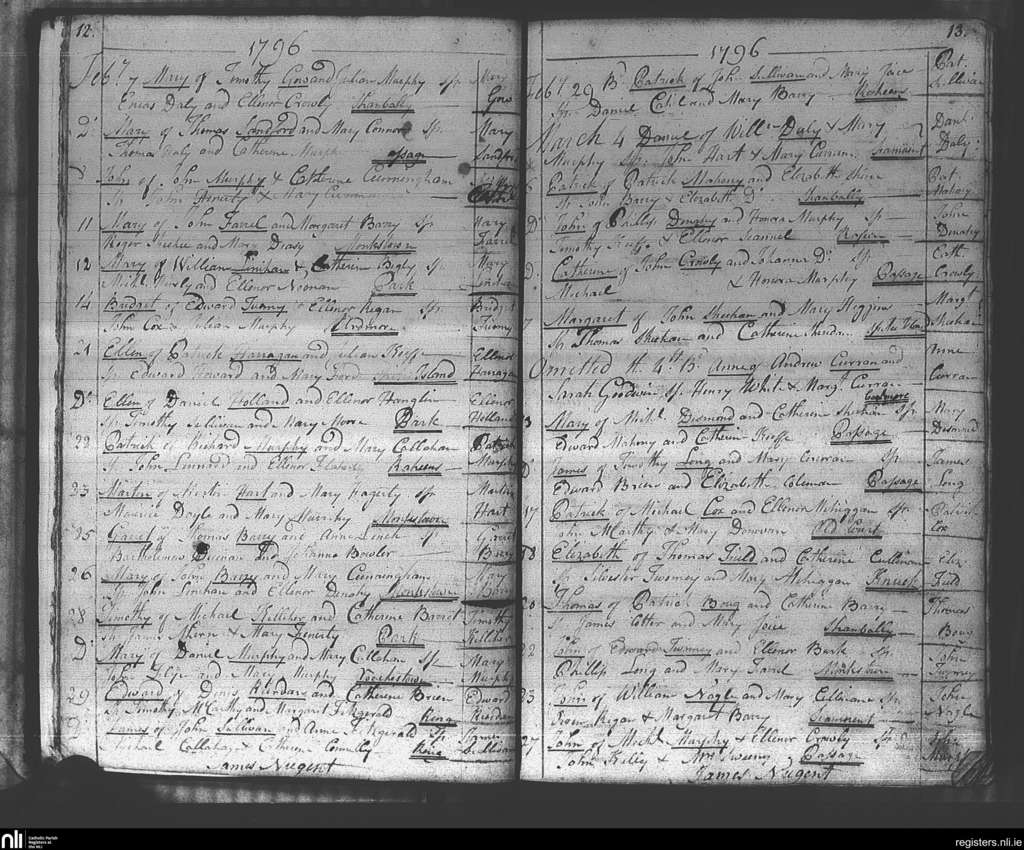 12
1796
Feby 7 Mary of Timothy Gow and Julian Murphy Sp: Mary
Eneas Daly and Ellenor Crowly Shanbally Gow
Do Mary of Thomas Sandford and Mary Connor Sp: Mary
Thomas Daly and Catherine Murph Passage Sandford
Do John of John Murphy & Catherine Cunningham
Sp: John Finerty & Mary
11 Mary of John Farrel and Margaret Barry Sp: Mary
Roger Sheehe and Mary Deasy Monkstown Farrel
12 Mary of William Linihan & Catherine Bigly Sp: Mary
Michl and Ellenor Noonan Park Linihan
14 Bridget of Edward Twomy & Ellenor Regan Sp: Bridget
John Cox & Julian Murphy Ardmore Twomy
21 Ellen of Patrick Hanagan and Julian Keeffe Ellenor
Sp: Edward Howard and Mary Ford Island Hanagan
Do Ellen of Daniel Holland and Ellenor Hanglin Ellenor
Sp: Timothy Sullivan and Mary Moore Park Holland
22 Patrick of Richard Murphy and Mary Callahan Patrick
Sp: John Linnard and Ellenor Flaherty Raheens Murphy
23 Martin of Martin Hart and Mary Hagerty Sp: Martin
Maurice Doyle and Mary Monkstown Hart
25 Garret of Thomas Barry and Anne Linch Sp: Garret
Bartholomew and Johanna Bowler Barry
26 Mary of John Barry and Mary Cunningham Mary
Sp: John Linihan and Ellenor Denahy Monkstown Barry
28 Timothy of Michael Kelliher and Catherine Barret Timothy
Sp: James Ahern & Mary Finerty Park Kelliher
Do Mary of Daniel Murphy and Mary Callahan Sp: Mary
and Mary Murphy Murphy
29 Edward of Denis Riordan and Catherine Brien Edward
Sp: Timothy McCarthy and Margaret Fitzgerald Ring Riordan
Do James of John Sullivan and Anne Fitzgerald Sp: James
Michael Callahan & Catherine Connelly Ring Sullivan
James Nugent
13
1796
Feby 29 Bd Patrick of John Sullivan and Mary Joice Pat
Sp: Daniel Cahil and Mary Barry Raheens Sullivan
March 4 Daniel of Willm Daly & Mary Danl
Murphy Sp: John Hart & Mary Curran Daly
Patrick of Patrick Mahony and Elizabeth Shine Pat
Sp: John Barry & Elizabeth Do Shanbally Mahony
Do John of Phillip Denahy and Honora Murphy Sp: John
Timothy Keeffe & Ellenor Scannel Denahy
Do Catherine of John Crowly and Johanna Do Sp: Cath
Michael & Honora Murphy Passage Crowly
7 Margaret of John Sheehan and Mary Higgins Margt
Sp: Thomas Sheehan and Catherine Sheehan Sheehan
Omitted th 4th Bd Anne of Andrew Curran and Anne
Sarah Goodwin Sp: Henry White & Margt Curran Curran
Mary of Michl Desmond and Catherine Sheehan Sp: Mary
Edward Mahony and Catherine Keeffe Passage Desmond
Do James of Timothy Long and Mary Corcoran Sp: James
Edward Brien and Elizabeth Coleman Passage Long
17 Patrick of Michael Cox and Ellenor Mehiggan Sp: Patrick
John McCarthy & Mary Donovan Old Court Cox
18 Elizabeth of Thomas Field and Catherine Cullinane Eliz
Sp: Silvester Twomey and Mary Mehiggan Field
20 Thomas of Patrick Boug and Catherine Barry Thomas
Sp: James Cotter and Mary Joice Shanbally Boug
22 John of Edward Twomey and Ellenor Burk Sp: John
Phillip Long and Mary Farrel Monkstown Twomey
23 John of William Nagle and Mary Cullinane Sp: John
Owen Regan & Margaret Barry Nagle
27 John of Michl Murphy & Ellenor Crowly Sp: John
John Kelley & Mrs Sweeny Passage Murphy
James Nugent
nli Catholic Parish Registers at the NLI
registers.nli.ie